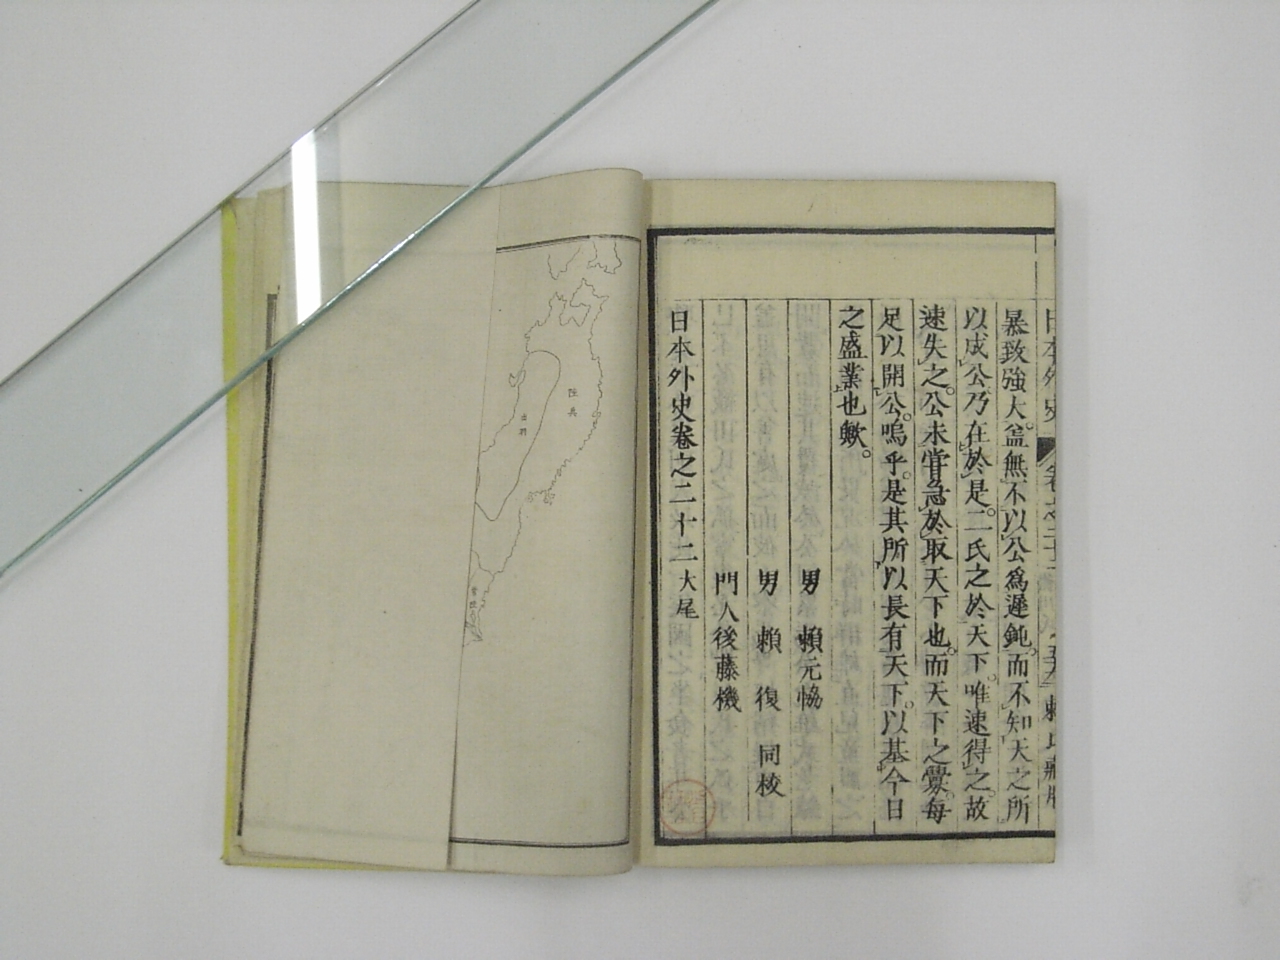 日本外史 卷之二十二
暴致強大。盖無不以公爲遲鈍。而不知天之所
以成公乃在於是。二氏之於天下。唯速得之。故
速失之。公未嘗急於取天下也。而天下之釁。每
足以開公。嗚乎。是其所以長有天下。以基今日
之盛業也歟。
男 賴元協
男 賴 復 同校
門人後藤機
日本外史卷之二十二大尾
陸奥
出羽
常陸